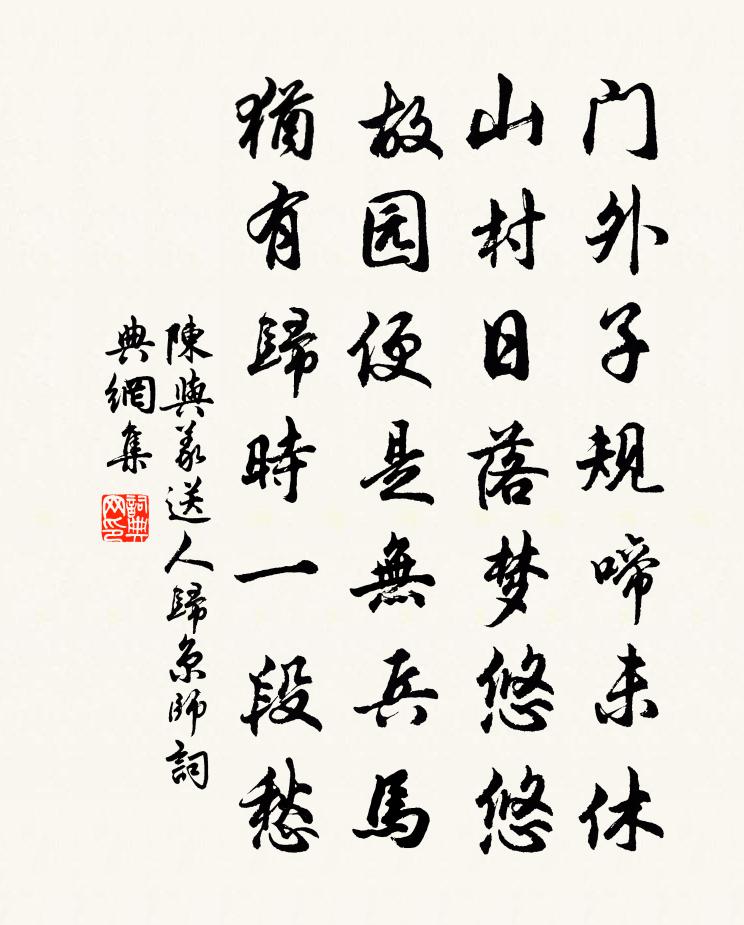 门外子规啼未休
山村日落梦悠悠
故园便是無兵馬
猶有歸時一段愁
陳與義送人歸京師詞
典網集
詞典网印